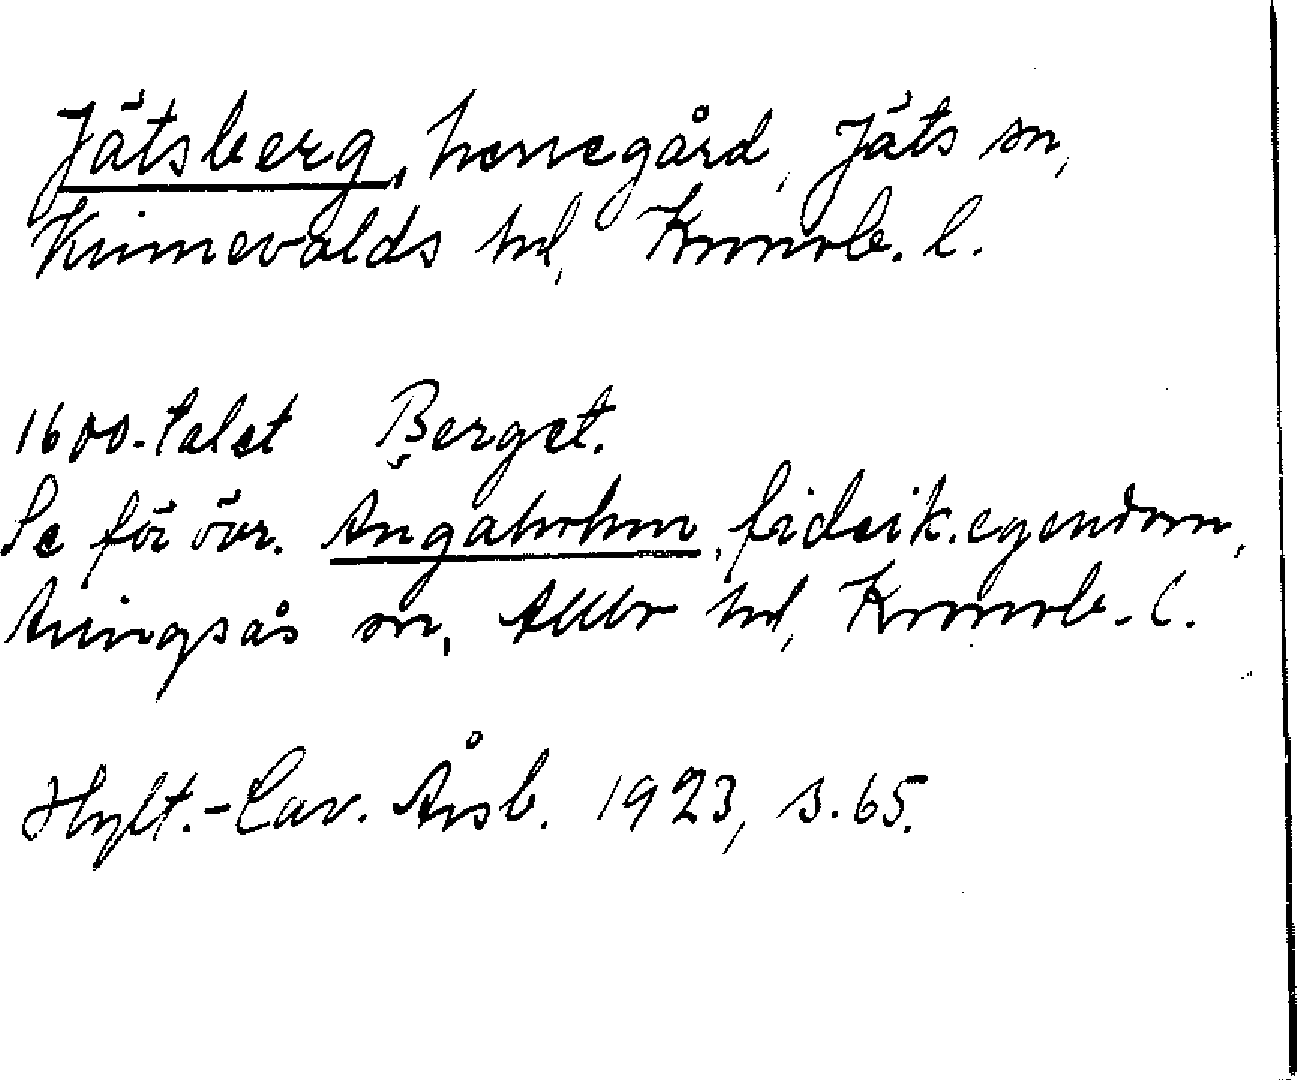 Jätsberg, herregård, Jäts sn,
Kinnevalds hd, Kronob. l.
1600-talet Berget.
Se för övr. Angahrhm, fideik.egendom,
Aringsås sn, Allbo hd, Kronob. l.
Hylt.-Cav. Årsb. 1923, s. 65.